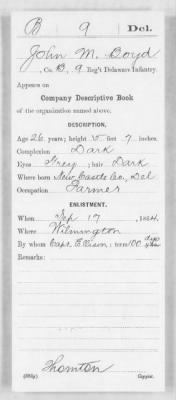 B 9 Del.
John M. Boyd
, Co. B, 9 Reg't Delaware Infantry.
Appears on
Company Descriptive Book
of the organization named above.
DESCRIPTION.
Age 26 years; height 5 feet 7 inches.
Complexion Dark
Eyes Grey; hair Dark
Where born New Castle Co., Del
Occupation Farmer
ENLISTMENT.
When Sep 17, 1864.
Where Wilmington
By whom Capt. Ellison; term 100 days
Remarks:
Thornton
Copyist.